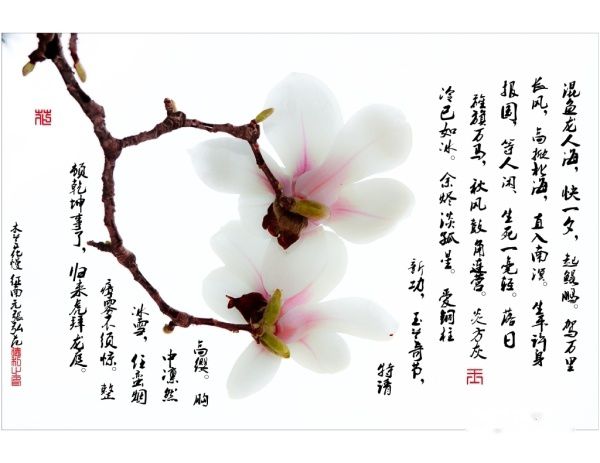 混鱼龙人海,快一夕,起鲲鹏。驾万里
长风,高掀北海,直入南溟。生平许身
报国,等人闲,生死一毫轻。落日
旌旗万马,秋风鼓角连营。炎方灰
冷已如冰。余烬淡孤星。爱铜柱
新功,玉关奇节,
特请
高缨。胸
中凛然
冰雪,任蛮烟
瘴雾不须惊。整
顿乾坤事了,归来虎拜龙庭。
木兰花慢 征南 元 张弘范